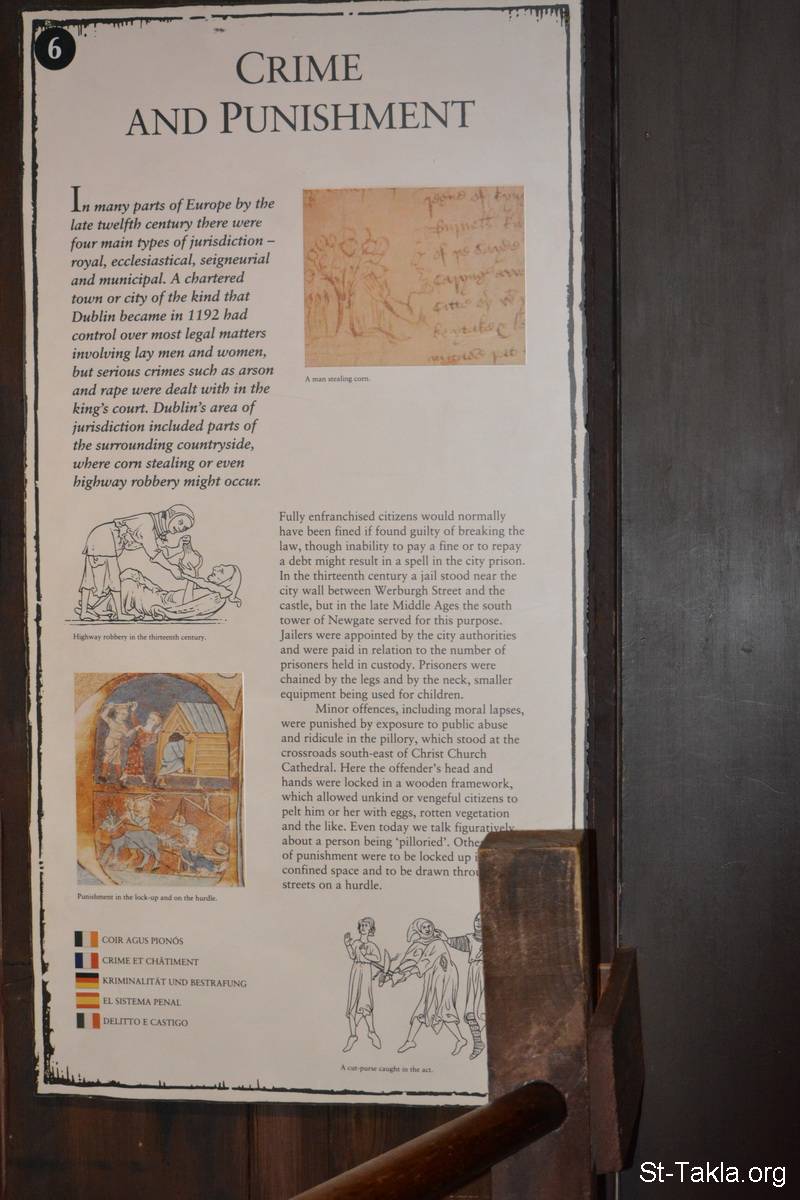 6
CRIME
AND PUNISHMENT
In many parts of Europe by the
late twelfth century there were
four main types of jurisdiction –
royal, ecclesiastical, seigneurial
and municipal. A chartered
town or city of the kind that
Dublin became in 1192 had
control over most legal matters
involving lay men and women,
but serious crimes such as arson
and rape were dealt with in the
king's court. Dublin's area of
jurisdiction included parts of
the surrounding countryside,
where corn stealing or even
highway robbery might occur.
A man stealing corn.
Highway robbery in the thirteenth century.
Punishment in the lock-up and on the hurdle.
Fully enfranchised citizens would normally
have been fined if found guilty of breaking the
law, though inability to pay a fine or to repay
a debt might result in a spell in the city prison.
In the thirteenth century a jail stood near the
city wall between Werburgh Street and the
castle, but in the late Middle Ages the south
tower of Newgate served for this purpose.
Jailers were appointed by the city authorities
and were paid in relation to the number of
prisoners held in custody. Prisoners were
chained by the legs and by the neck, smaller
equipment being used for children.
Minor offences, including moral lapses,
were punished by exposure to public abuse
and ridicule in the pillory, which stood at the
crossroads south-east of Christ Church
Cathedral. Here the offender's head and
hands were locked in a wooden framework,
which allowed unkind or vengeful citizens to
pelt him or her with eggs, rotten vegetation
and the like. Even today we talk figuratively
about a person being 'pilloried'.
of punishment were to be locked up
confined space and to be drawn
streets on a hurdle.
COIR AGUS PIONÓS
CRIME ET CHÂTIMENT
KRIMINALITÄT UND BESTRAFUNG
EL SISTEMA PENAL
DELITTO E CASTIGO
A cut-purse caught in the act.
St-Takla.org